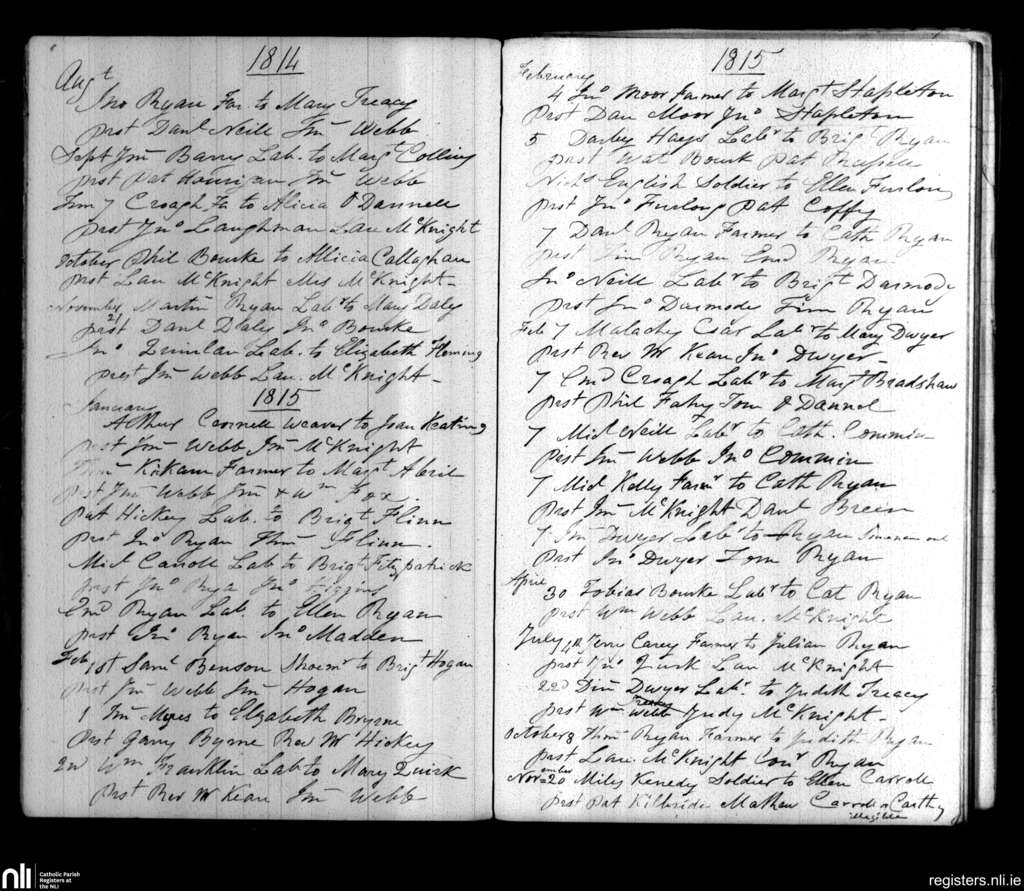 1814
Augt
Jno Ryan Far to Mary Treacy
prst Danl Neill Jm Webb
Sept Jm Barry Lab. to Margt Collins
prst Pat Hourigan Jm Webb
Croagh Fa to Alicia O'Dannell
prst Jno Laughman Lau McKnight
October Phil Bourke to Allicia Callaghan
prst Lau McKnight Mrs McKnight
November Martin Ryan Labr to Mary Daley
21 prst Danl Daley Jno Bourke
Jno Quinlan Lab. to Elizabeth Fleming
prst Jm Webb Lau. McKnight
1815
January
Arthur Connell Weaver to Joan Keating
prst Jm Webb Jm McKnight
Farmer to Margt
prst Jm Webb Jm & Wm Fox
Pat Hickey Lab. to Brigt Flinn
Prst Jno Ryan Thm Flinn.
Mick Carroll Lab to Brigt Fitzpatrick
prst Jno Jno Higgins
Emd Ryan Lab. to Ellen Ryan
prst Jno Ryan Jno Madden
Feb 1st Saml Benson Shoemr to Brigt Hogan
prst Jm Webb Jm Hogan
1 to Elizabeth Bryrne
Prst Garry Byrne Rev Mr Hickey
2d Wm Franklin Lab to Mary Quirk
Prst Rev Mr Kean Jm Webb
1815
February
4 Jno Moor farmer to Margt Stapleton
Prst Dan Moor Jno Stapleton
5 Darby Hays Labr to Brigt Ryan
prst Wat Bourk Pat
Nichs English Soldier to Ellen Furlong
prst Jno Furlong Pat Coffy
7 Danl Ryan Farmer to Cath Ryan
prst Tim Ryan Emd Ryan
Jno Neill Labr to Brigt Dasmode
Prst Jno Dasmode Tim Ryan
Feb 7 Malachy Labr to Mary Dwyer
Prst Rev Mr Kean Jno Dwyer
7 Emd Croagh Labr to Margt Bradshaw
prst Phil Fahy Tom O Dannel
7 Mick Neill Labr to Cath. Commin
Prst Jm Webb Jno Commin
7 Mick Kelly Farmr to Cath Ryan
Prst Jm McKnight Danl Breen
7 Jm Dwyer Labr to Ryan
Prst Jno Dwyer Tom Ryan
April
30 Tobias Bourke Labr to Cat Ryan
prst Wm Webb Lau. McKnight
July 4th Terry Carey Farmer to Julian Ryan
prst Jno Quirk Lau McKnight
22d Dwyer Labr. to Judeth Treacy
prst Wm Webb Judy McKnight
October 8 Thm Ryan Farmer to Judith Ryan
prst Lau. McKnight Conr Ryan
November 20 Miles Kenedy Soldier to Ellen Carroll
prst Pat Mathew Carroll or Carthy
nli
Catholic Parish
Registers at
the NLI
registers.nli.ie